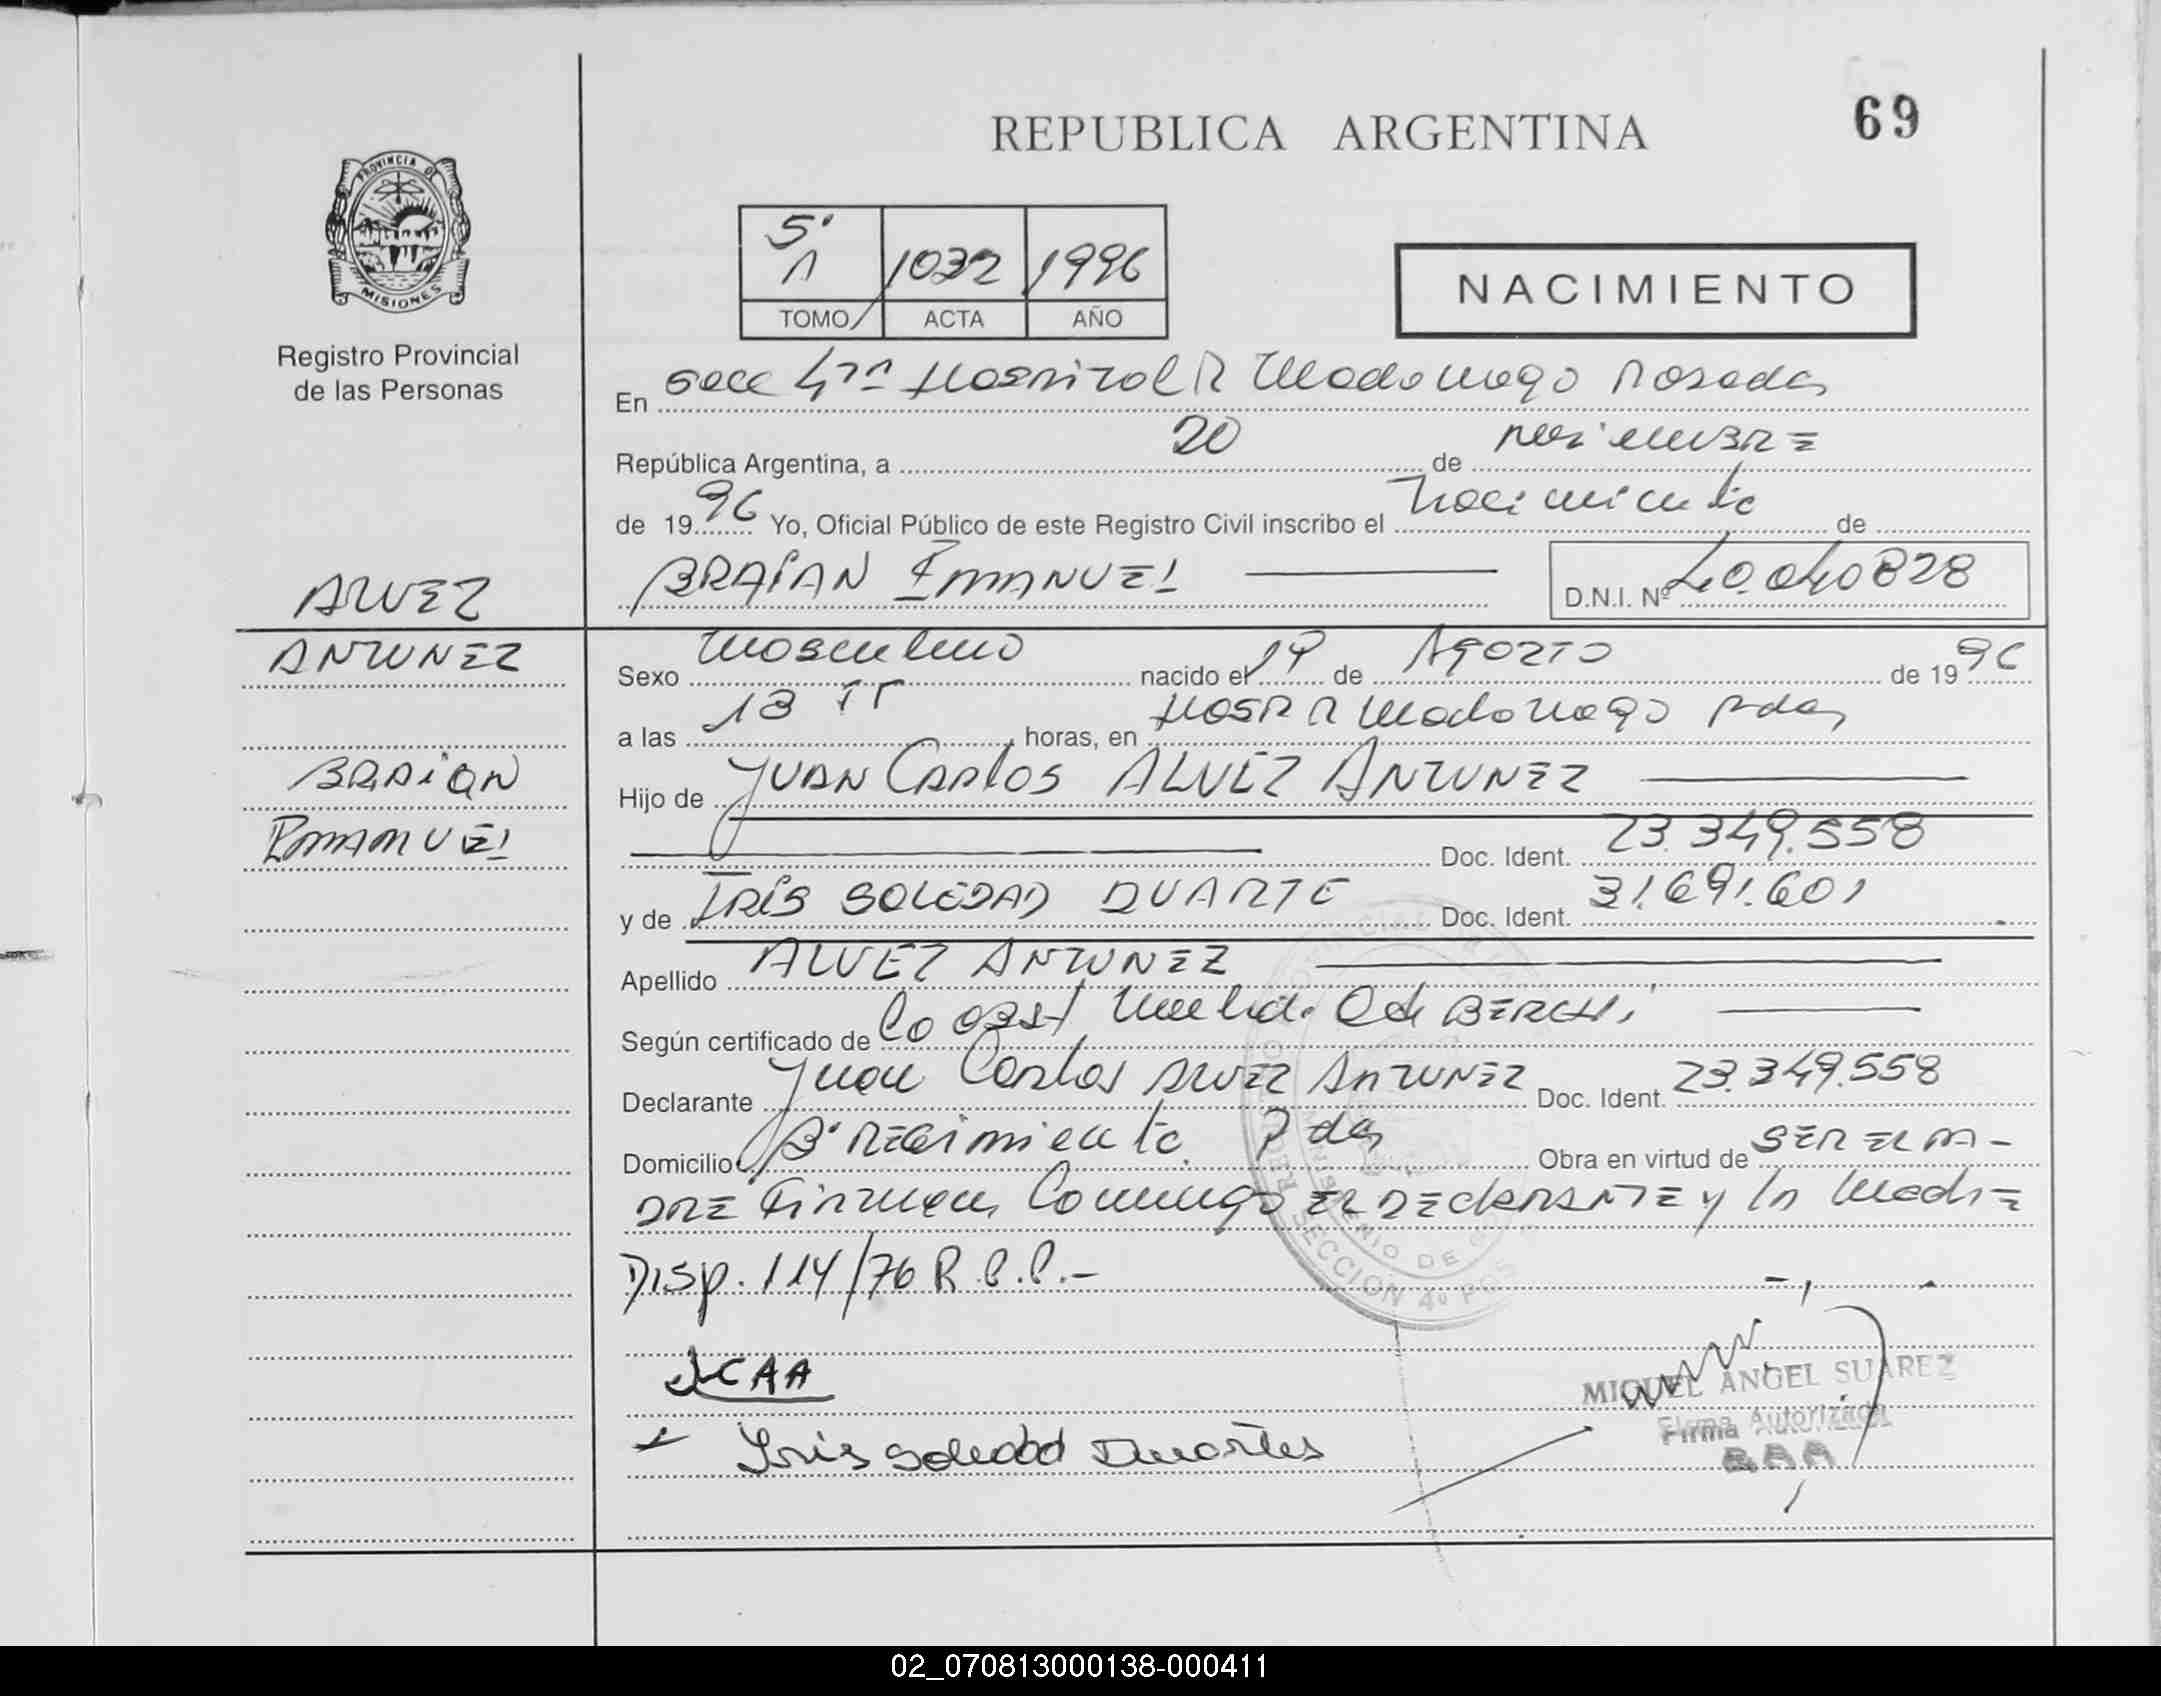 REPUBLICA ARGENTINA
69
PROVINCIA DE
MISIONES
Registro Provincial
de las Personas
5º
1 1032 1996
TOMO ACTA AÑO
NACIMIENTO
En Secc 4ta Hospital R Madariaga Posadas
República Argentina, a 20 de Noviembre
de 1996 Yo, Oficial Público de este Registro Civil inscribo el nacimiento de
BRAIAN EMANUEL D.N.I. Nº 40.040828
ALVEZ
ANTUNEZ
BRAIAN
EMANUEL
Sexo masculino nacido el 19 de Agosto de 1996
a las 13 horas, en Hosp R Madariaga Pdas
Hijo de JUAN CARLOS ALVEZ ANTUNEZ
Doc. Ident. 23.349.558
y de IRIS SOLEDAD DUARTE Doc. Ident. 31.691.601
Apellido ALVEZ ANTUNEZ
Según certificado de Co Obst
Declarante Juan Carlos ALVEZ ANTUNEZ Doc. Ident. 23.349.558
Domicilio Bº Pdas Obra en virtud de SER EL PA-
DRE Firman Conmigo EL DECLARANTE y la Madre
Disp. 114/76 R.P.P.-
JCAA
Iris Soledad Duartes
MIGUEL ANGEL SUAREZ
Firma Autorizada
SECCION 4º POS
02_070813000138-000411